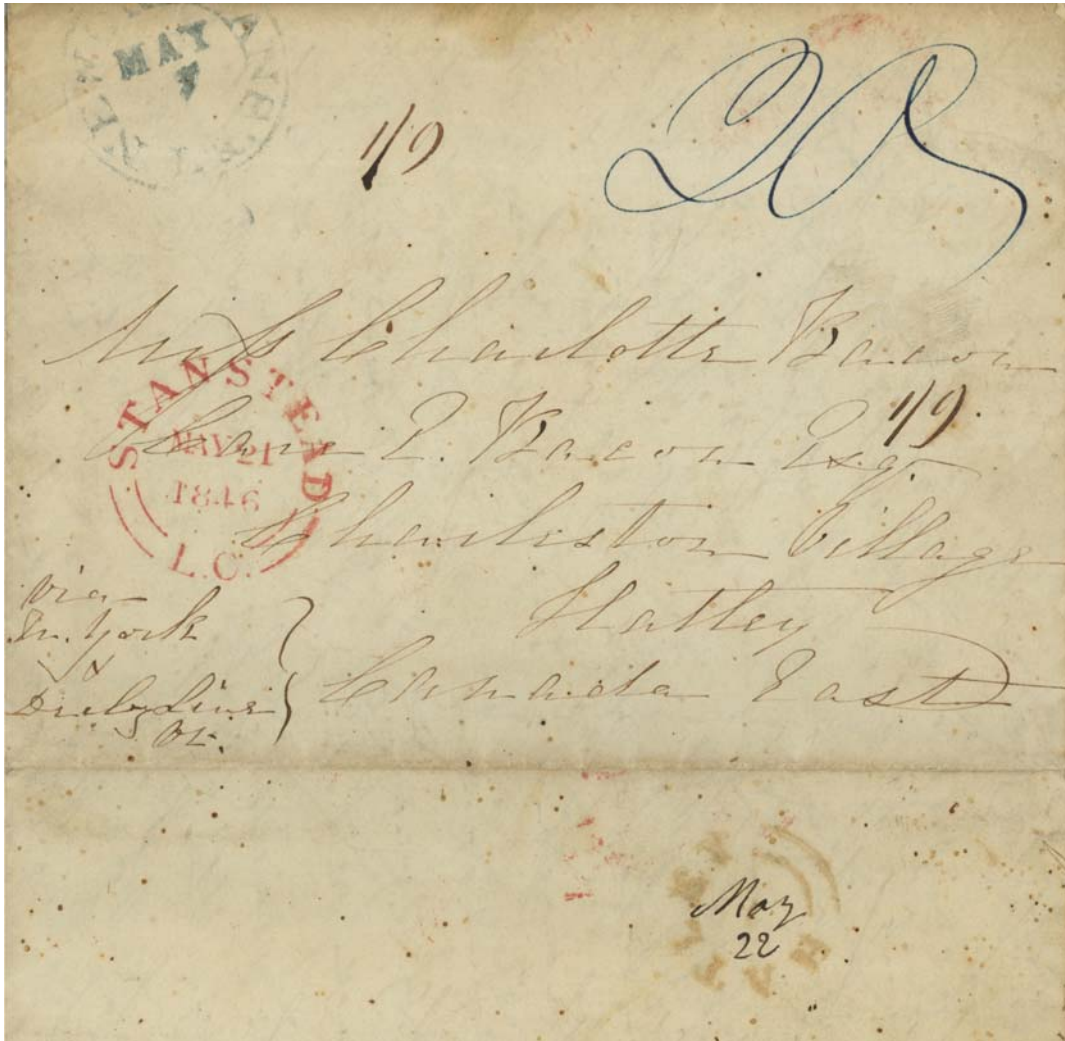 MAY
1/9
20
Miss Charlotte Bacon
1/9
Bacon Esq
STANSTEAD
MAY 21
1846
L.C.
Charleston Village
Hatley
Canada East
via
N. York
&
Derby Line
Vt.
May
22